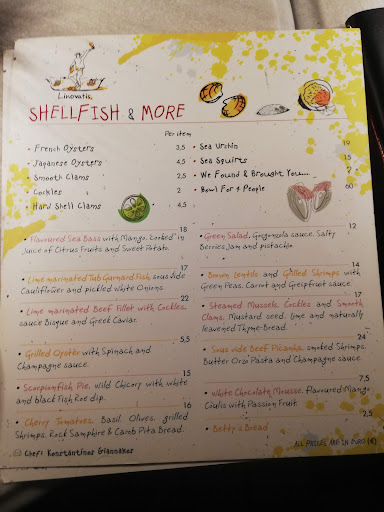 Linovatis,
SHELLFISH & MORE
Per item
• French Oysters 3,5
• Japanese Oysters 4,5
• Smooth Clams 2,5
• Cockles 2
• Hard Shell Clams 4,5
• Sea Urchin 19
• Sea Squirts 15
• We Found & Brought You....
• Bowl For 4 People 60
18
• Flavoured Sea Bass with Mango, "corbed" in
Juice of Citrus Fruits and Sweet Potato.
17
• Lime marinated Tub Gurnard Fish, sous vide
Cauliflower and pickled white Onions.
22
• Lime marinated Beef Fillet with Cockles,
sauce Bisque and Greek Caviar.
5,5
• Grilled Oyster with Spinach and
Champagne sauce.
15
• Scorpionfish Pie, wild Chicory with white
and black Fish Roe dip.
16
• Cherry Tomatoes, Basil, Olives, grilled
Shrimps, Rock Samphire & Carob Pita Bread.
Chef: Konstantinos Giannakos
12
• Green Salad, Gorgonzola sauce, Salty
Berries Jam and pistachio.
14
• Brown Lentils and Grilled Shrimps with
Green Peas, Carrot and Greipfruit sauce.
17
• Steamed Mussels, Cockles and Smooth
Clams, Mustard seed, lime and naturally
leavened Thyme-Bread.
24
• Sous vide Beef Picanha, smoked Shrimps,
Butter Orzo Pasta and Champagne sauce.
7,5
• White Chocolate Mousse, flavoured Mango
Coulis with Passion Fruit.
2
• Betty's Bread
ALL PRICES ARE IN EURO (€)